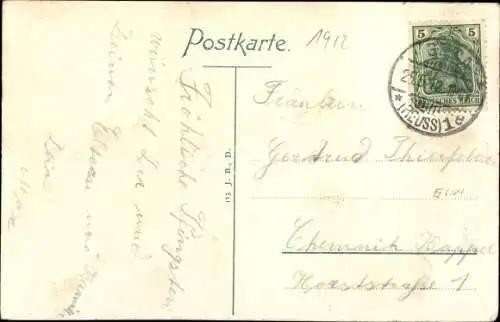 Postkarte.
1912
5 5
DEUTSCHES REICH
(REUSS) 1 a
Fröhliche Pfingsten
wünscht Dir und
Deinen Eltern
Dein
Max
Fräulein
Gertrud
Chemnitz Kappel
Horststraße 1
J. B. D.